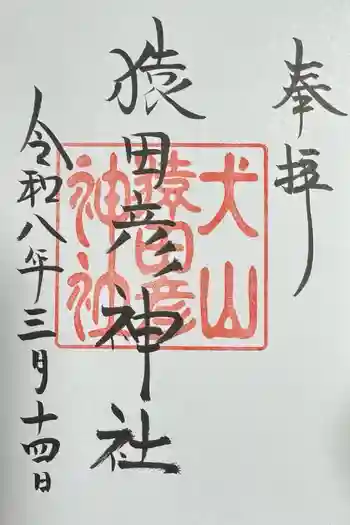 奉拝
猿田彦神社
犬山
猿田彦
神社
令和八年三月十四日